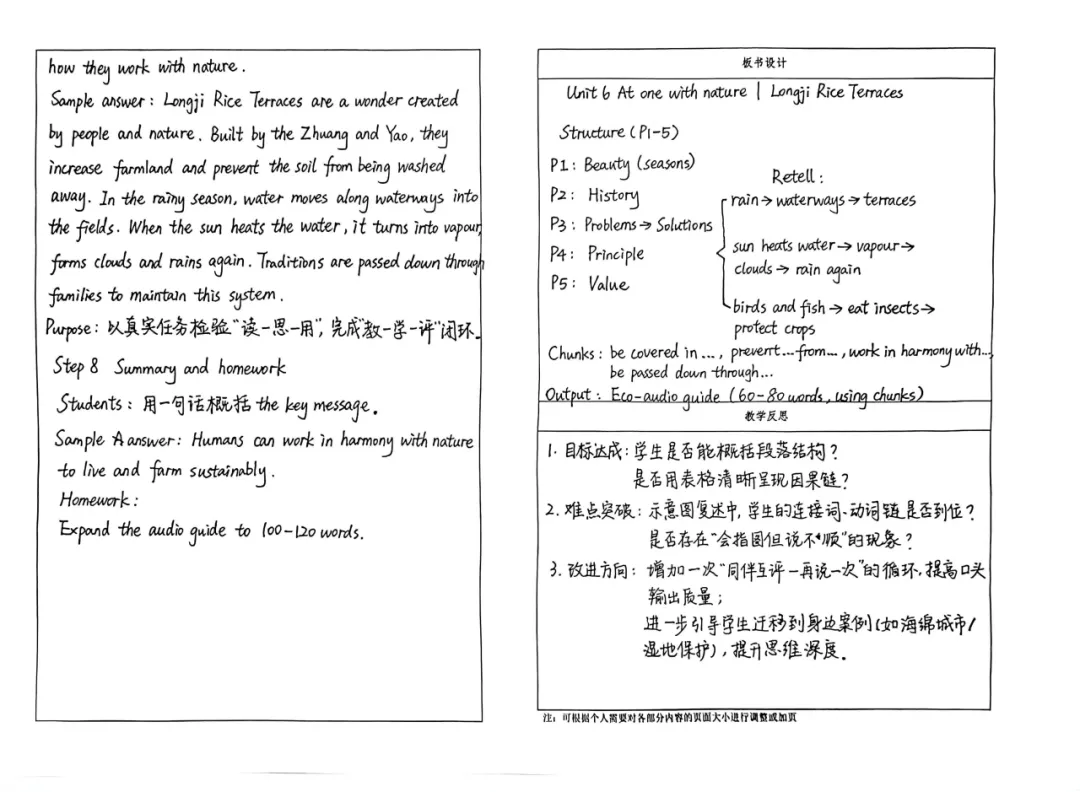 how they work with nature.
Sample answer: Longji Rice Terraces are a wonder created
by people and nature. Built by the Zhuang and Yao, they
increase farmland and prevent the soil from being washed
away. In the rainy season, water moves along waterways into
the fields. When the sun heats the water, it turns into vapour,
forms clouds and rains again. Traditions are passed down through
families to maintain this system.
Purpose: 以真实任务检验"读-思-用", 完成"教-学-评"闭环.
Step 8 Summary and homework
Students: 用一句话概括 the key message.
Sample A answer: Humans can work in harmony with nature
to live and farm sustainably.
Homework:
Expand the audio guide to 100-120 words.
板书设计
Unit 6 At one with nature | Longji Rice Terraces
Structure (P1-5)
P1: Beauty (seasons)
P2: History
P3: Problems → Solutions
P4: Principle
P5: Value
Retell:
rain → waterways → terraces
sun heats water → vapour →
clouds → rain again
birds and fish → eat insects →
protect crops
Chunks: be covered in ..., prevent...from..., work in harmony with...,
be passed down through...
Output: Eco-audio guide (60-80 words, using chunks)
教学反思
1. 目标达成: 学生是否能概括段落结构?
是否用表格清晰呈现因果链?
2. 难点突破: 示意图复述中, 学生的连接词、动词链是否到位?
是否存在"会指图但说不顺"的现象?
3. 改进方向: 增加一次"同伴互评-再说一次"的循环, 提高口头
输出质量;
进一步引导学生迁移到身边案例(如海绵城市/
湿地保护), 提升思维深度.
注: 可根据个人需要对各部分内容的页面大小进行调整或加页